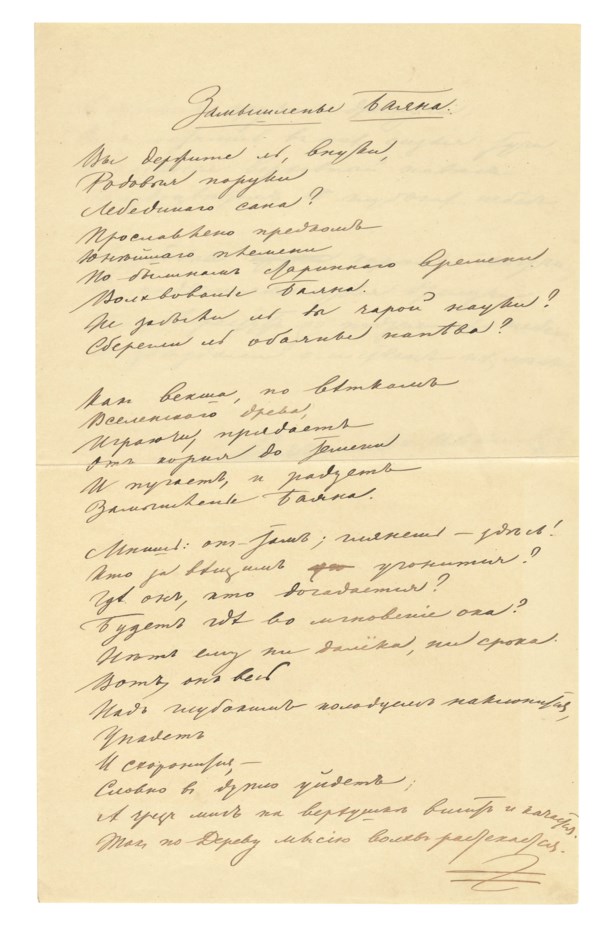 Замышленье Баяна.
Вы держите ль, внуки,
Родовыя поруки
Лебединаго сана?
Прославлено предкомъ
Юнѣйшаго племени
По былинамъ Старинного времени
Волхвованье Баяна.
Не забыли ль вы чарой науки?
Сберегли ль обаянье напѣва?
Какъ векша, по вѣткамъ
Вселенского древа,
Играючи, прядаетъ
Отъ корня до темени
И пугаетъ, и радуетъ
Замышленье Баяна.
Мнишь: он-тамъ; глянешь – здѣсь!
Кто за вѣщимъ угонится?
Гдѣ онъ, кто догадается?
Будетъ гдѣ во мгновеніе ока?
Нѣтъ ему ни далёка, ни срока.
Вотъ, онъ весь
Надъ глубокимъ колодцемъ наклонится,
Упадетъ
И схоронится, –
Словно въ дупло уйдетъ;
А чрезъ мигъ на верхушкѣ виситъ и качается.
Такъ по Древу мысію волхвъ растекается.